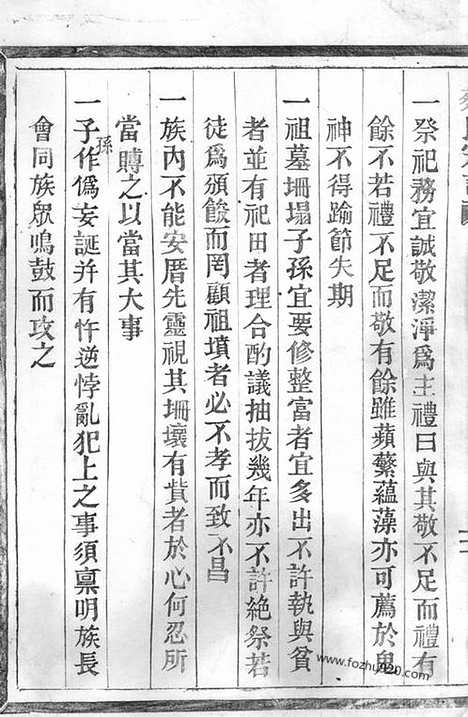 一祭祀務宜誠敬潔淨為主禮曰與其敬不足而禮有
餘不若禮不足而敬有餘雖蘋蘩蘊藻亦可薦於鬼
神不得踰節失期
一祖墓坍塌子孫宜要修整富者宜多出不許執與貧
者並有祀田者理合酌議抽拔幾年亦不許絶祭若
徒為頒餕而罔顧祖墳者必不孝而致不昌
一族內不能安厝先靈視其坍壞有貲者於心何忍所
當賻之以當其大事
一子孫作偽妄誕并有忤逆悖亂犯上之事須禀明族長
會同族眾鳴鼓而攻之
www.fozhu920.com